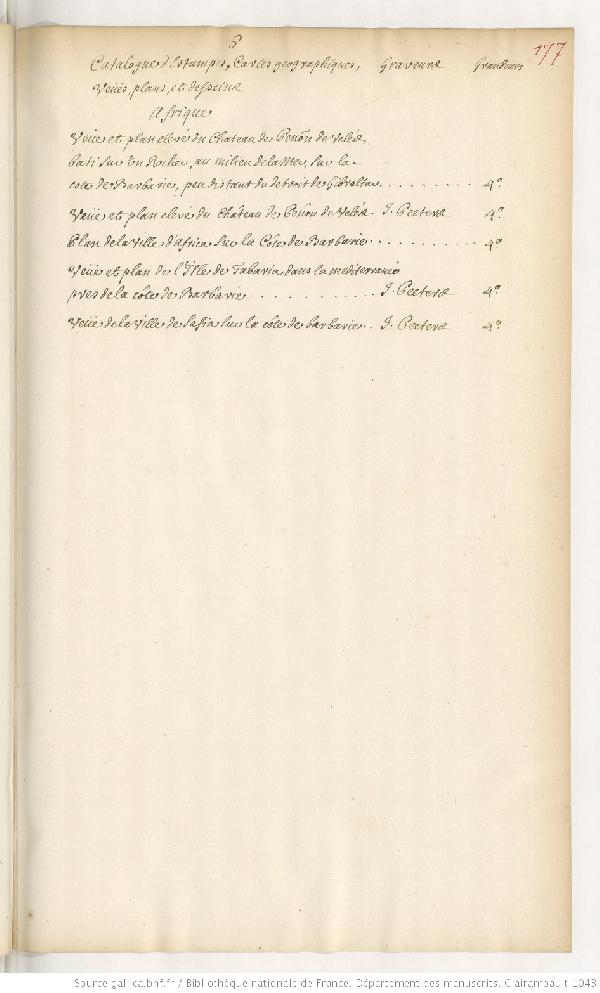 6
177
Catalogue d'Estampes, Cartes geographiques, Graveurs Grandeurs
Veües, plans, et desseins
Afrique
Veüe et plan elevé du Chateau de Penõn de Veléz,
bati sur un Rocher au milieu de la Mer, sur la
cote de Barbarie, peu distant du detroit de Gibraltar ......... 4°.
Veüe et plan elevé du Château de Penõn de Veléz. J. Peeters 4°.
Plan de la Ville d'africa sur la Côte de Barbarie ........... 4°
Veüe et plan de l'Isle de Tabaria dans la mediterranée
pres de la côte de Barbarie .......... J. Peeters 4°
Veüe de la Ville de Safia sur la côte de barbarie .. J. Peeters 4°
Source gallica.bnf.fr / Bibliothèque nationale de France. Département des manuscrits. Clairambault 1043